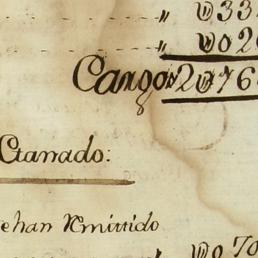 " U033
" U026
Cargo 2U76
Ganado:
e han Remitido
" U070